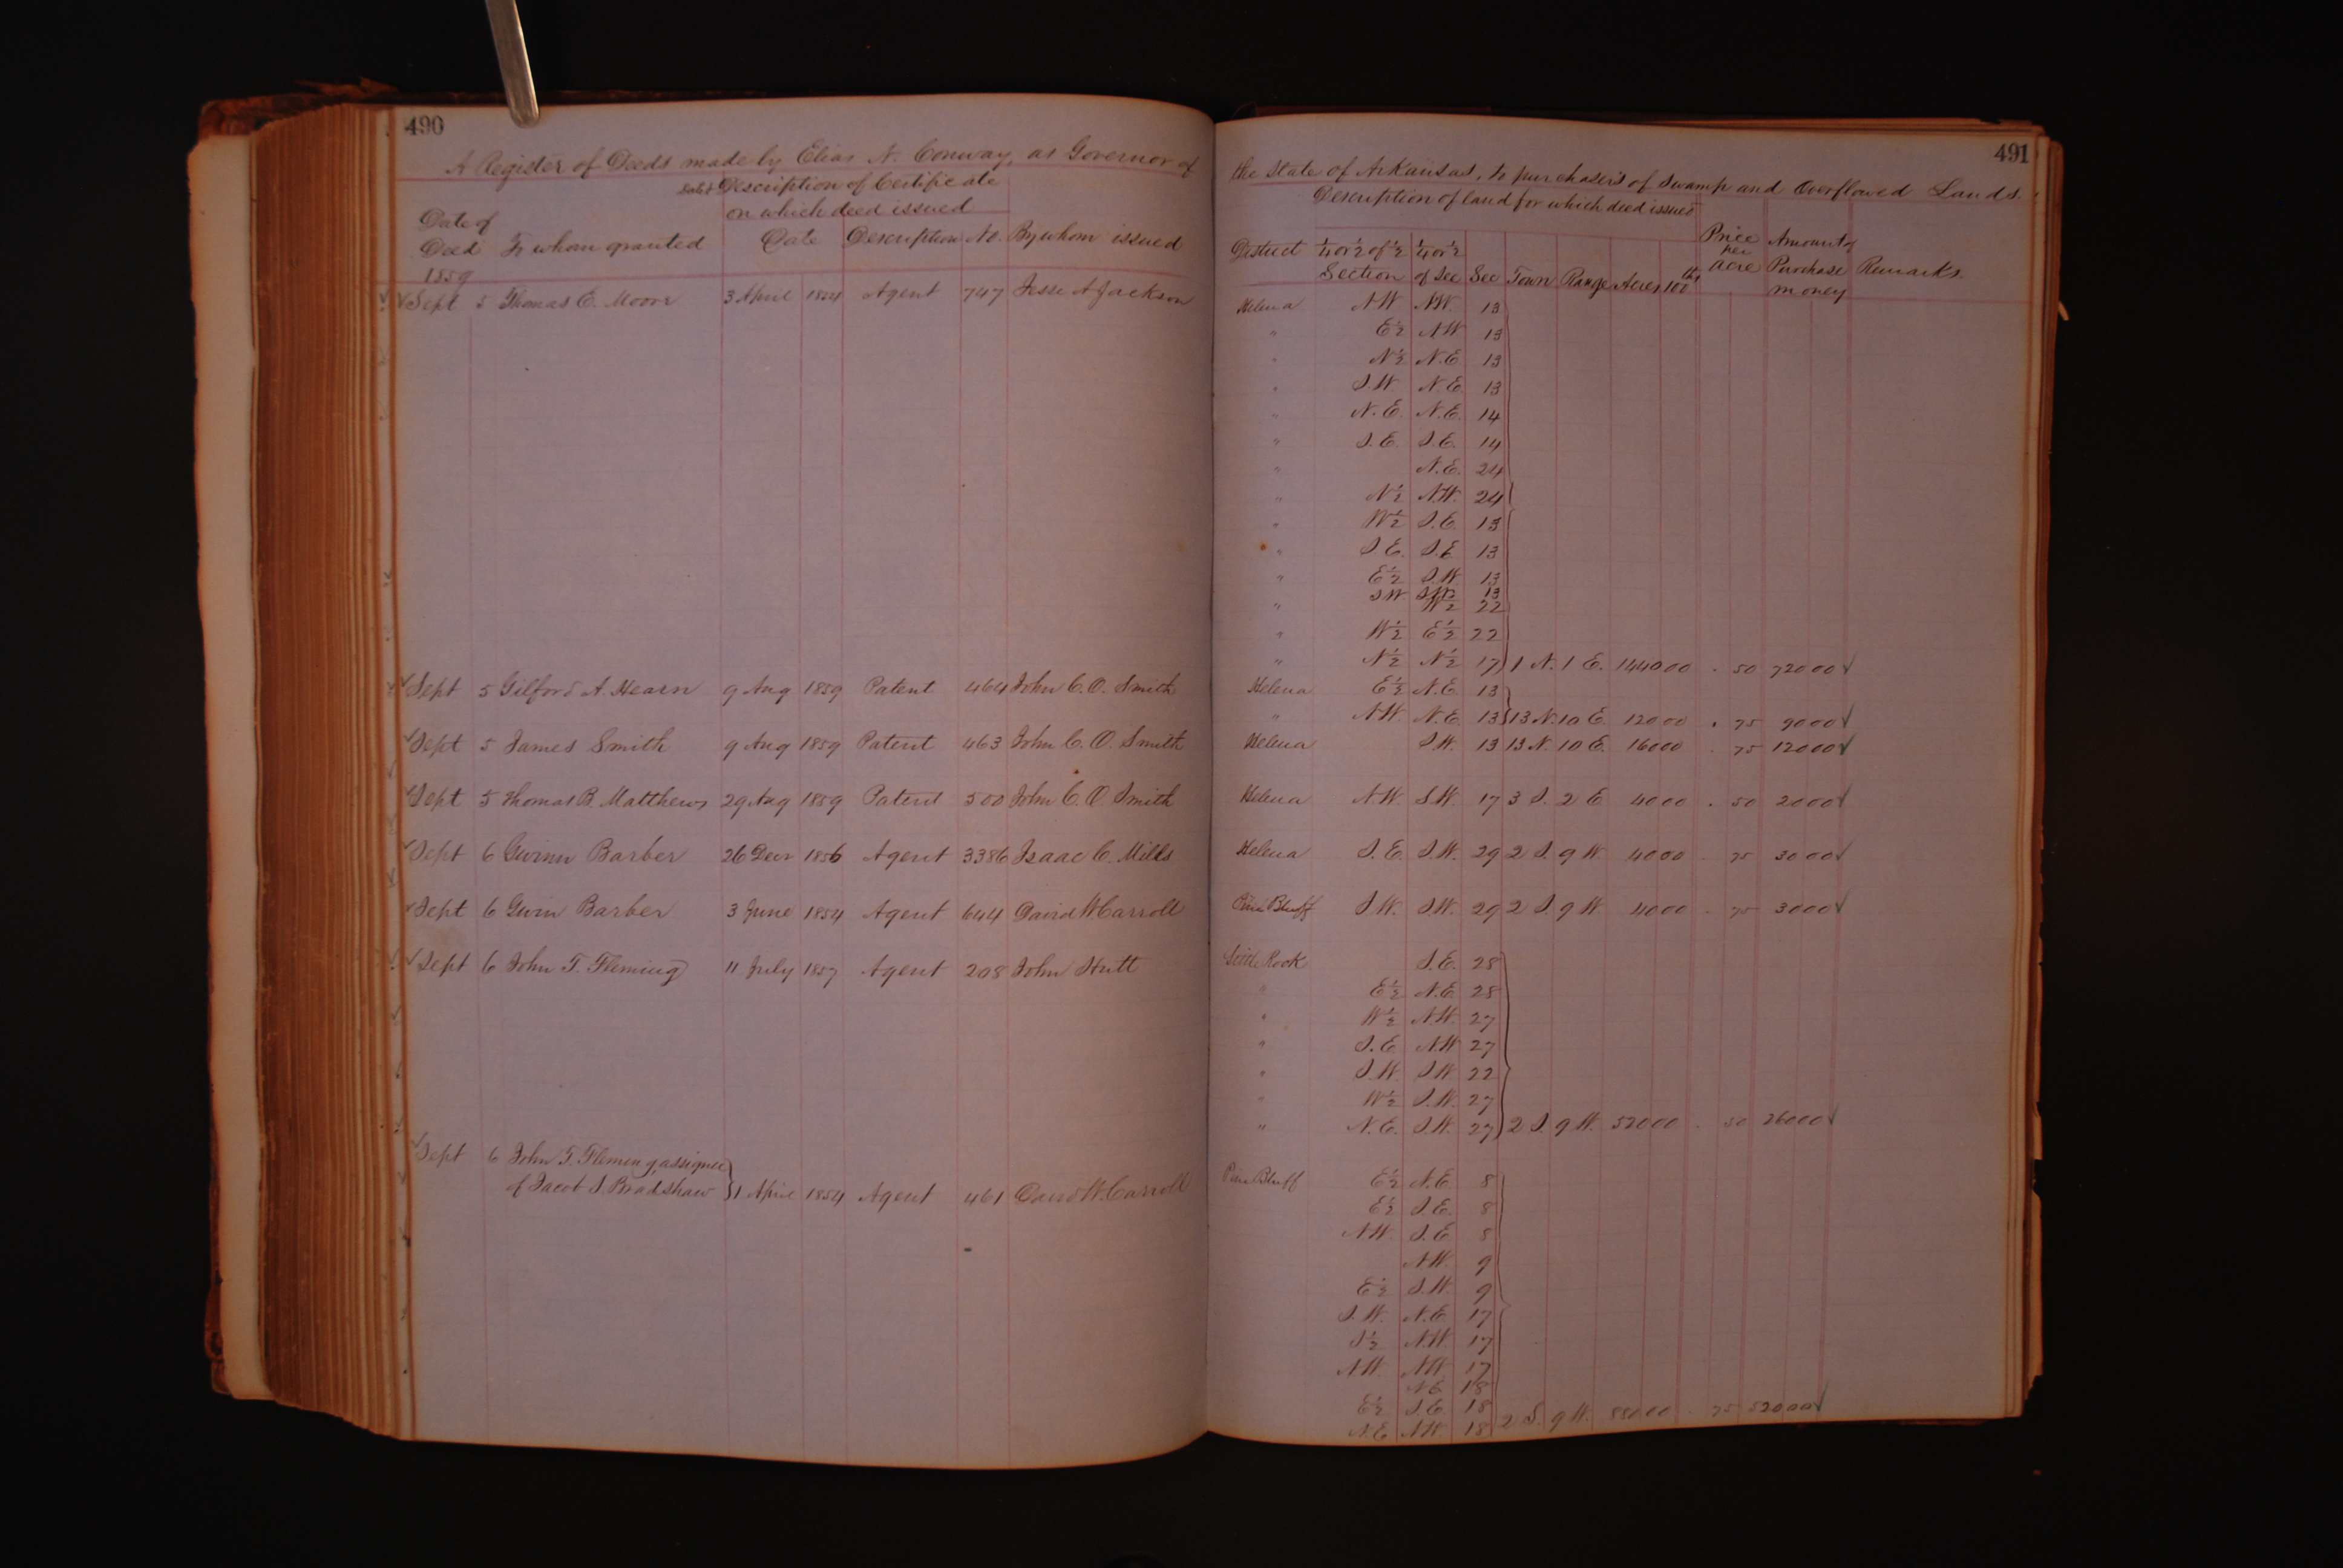 490
A Register of Deeds made by Elias N. Conway, as Governor of
Date of Description of Certificate
on which deed issued
Date of
Deed To whom granted Date Description No. By whom issued
1859
Sept 5 Thomas C. Moore 3 April 1854 Agent 747 Jesse A Jackson
Sept 5 Gilford A. Hearn 9 Aug 1859 Patent 464 John C. O. Smith
Sept 5 James Smith 9 Aug 1859 Patent 463 John C. O. Smith
Sept 5 Thomas B. Matthews 29 Aug 1859 Patent 500 John C. O. Smith
Sept 6 Gwinn Barber 26 Decr 1856 Agent 3386 Isaac C. Mills
Sept 6 Gwin Barber 3 June 1854 Agent 644 David W Carroll
Sept 6 John T. Fleming 11 July 1857 Agent 208 John Hutt
Sept 6 John T. Fleming, assignee
of Jacob S. Bradshaw } 1 April 1854 Agent 461 David W. Carroll
491
the State of Arkansas, to purchasers of Swamp and Overflowed Lands.
Description of land for which deed issued
District 1/4 or 1/2 of 1/2 1/4 or 1/2 Price per Amount of
Section of Sec Sec Town Range Acres 100ths Acre Purchase Remarks
money
Helena N.W. N.W. 13
" E 1/2 N.W 13
" N 1/2 N.E. 13
" S.W. N.E. 13
" N.E. N.E. 14
" S.E. S.E. 14
" N.E. 24
" N 1/2 N.W. 24
" W 1/2 S.E. 13
" S.E. S.E. 13
" E 1/2 S.W. 13
SW SW 13
" W 1/2 22
" W 1/2 E 1/2 22
" N 1/2 N 1/2 17 1 N. 1 E. 1440 00 . 50 720 00 ✓
Helena E 1/2 N.E. 13
" N.W. N.E. 13 13 N. 10 E. 120 00 . 75 90 00 ✓
Helena S.W. 13 13 N. 10 E. 160 00 . 75 120 00 ✓
Helena N.W. S.W. 17 3 S. 2 E 40 00 . 50 20 00 ✓
Helena S.E. S.W. 29 2 S. 9 W. 40 00 . 75 30 00 ✓
Pine Bluff S.W. S.W. 29 2 S. 9 W. 40 00 . 75 30 00 ✓
Little Rock S.E. 28
" E 1/2 N.E. 28
" W 1/2 N.W. 27
" S.E. N.W. 27
" S.W. S.W. 22
" W 1/2 S.W. 27
" N.E. S.W. 27 2 S. 9 W. 520 00 . 50 260 00 ✓
Pine Bluff E 1/2 N.E. 8
E 1/2 S.E. 8
N.W. S.E. 8
N.W. 9
E 1/2 S.W. 9
S.W. N.E. 17
S 1/2 N.W. 17
N.W. N.W. 17
N.E. 18
E 1/2 S.E. 18
N.W 18 2 S. 9 W. . 75 ✓